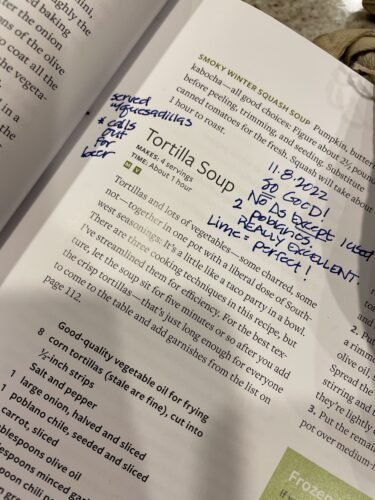 hini,
ghly the
ed baking
fter the onion
ons of the olive
o coat all the
the vegeta-
d in a
r the
SMOKY WINTER SQUASH SOUP Pumpkin, buttern
kabocha—all good choices: Figure about 2½ pound
before peeling, trimming, and seeding. Substitute
canned tomatoes for the fresh. Squash will take about
1 hour to roast.
served
w/quesadillas
* calls
out
for
beer
Tortilla Soup
MAKES: 4 servings
TIME: About 1 hour
M V
11.8.2022
SO GOOD!
No As Except I used
2 poblanos.
REALLY EXCELLENT.
Lime = perfect!
Tortillas and lots of vegetables—some charred, some
not—together in one pot with a liberal dose of South-
west seasonings: It's a little like a taco party in a bowl.
There are three cooking techniques in this recipe, but
I've streamlined them for efficiency. For the best tex-
ture, let the soup sit for five minutes or so after you add
the crisp tortillas—that's just long enough for everyone
to come to the table and add garnishes from the list on
page 112.
Good-quality vegetable oil for frying
8 corn tortillas (stale are fine), cut into
½-inch strips
Salt and pepper
1 large onion, halved and sliced
1 poblano chile, seeded and sliced
carrot, sliced
blespoons olive oil
espoons minced ga
spoon chili p
2. Put
a rimm
olive oil,
Spread the
stirring and t
they're lightly
3. Put the remai
pot over medium-l
Frozen